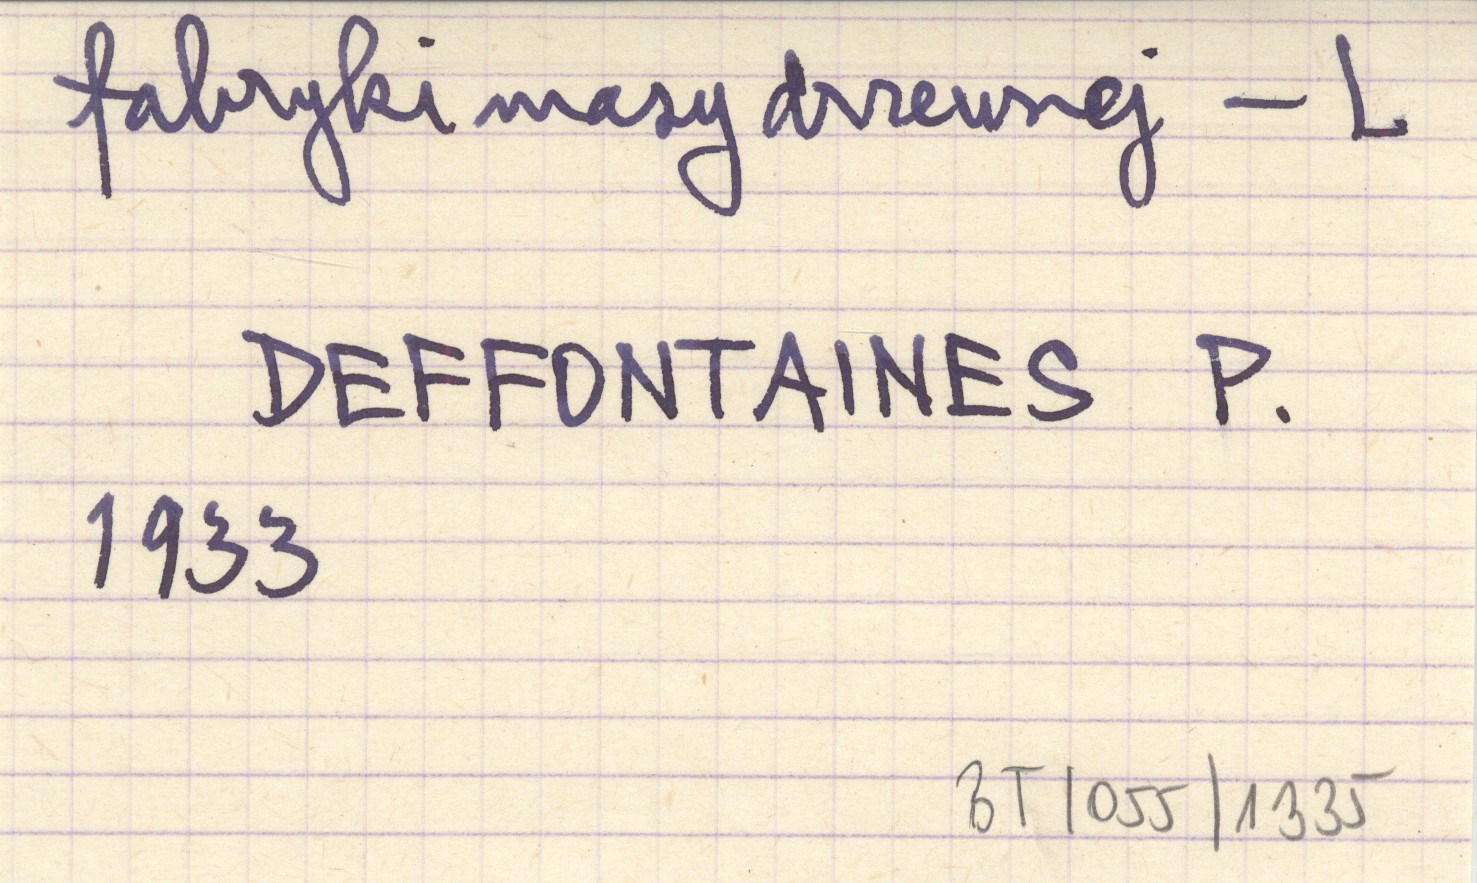 fabryki masy drzewnej – L
DEFFONTAINES P.
1933
BT/055/1335